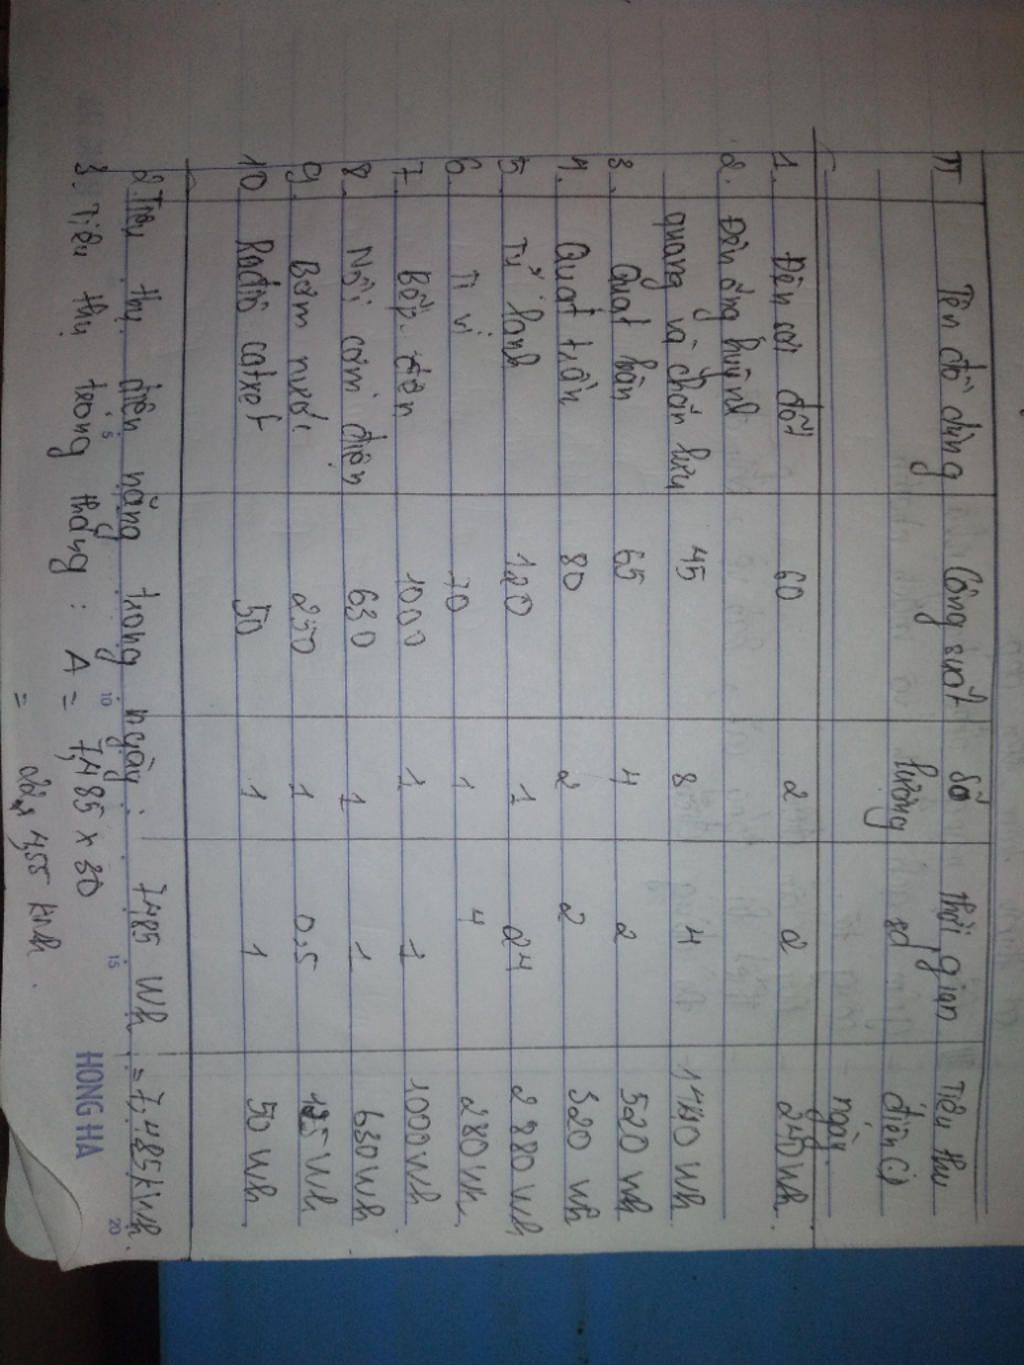 TT Tên đồ dùng Công suất Số lượng Thời gian sd Tiêu thụ điện (1 ngày
1. Đèn sợi đốt 60 2 2 240 Wh.
2. Đèn ống huỳnh
quang và chấn lưu 45 8 4 1440 Wh
3. Quạt bàn 65 4 2 520 Wh
4. Quạt trần 80 2 2 320 Wh
5. Tủ lạnh 120 1 24 2880 Wh
6. Ti vi 70 1 4 280 Wh.
7. Bếp điện 1000 1 1 1000 Wh
8. Nồi cơm điện 630 1 1 630 Wh
9. Bơm nước 250 1 0,5 125 Wh
10. Rađiô catxet 50 1 1 50 Wh
2. Tiêu thụ điện năng trong ngày: 7485 Wh = 7,485 kWh.
3. Tiêu thụ trong tháng: A = 7,485 x 30
= 4,55 kWh.
5 10 15 20
HONG HA